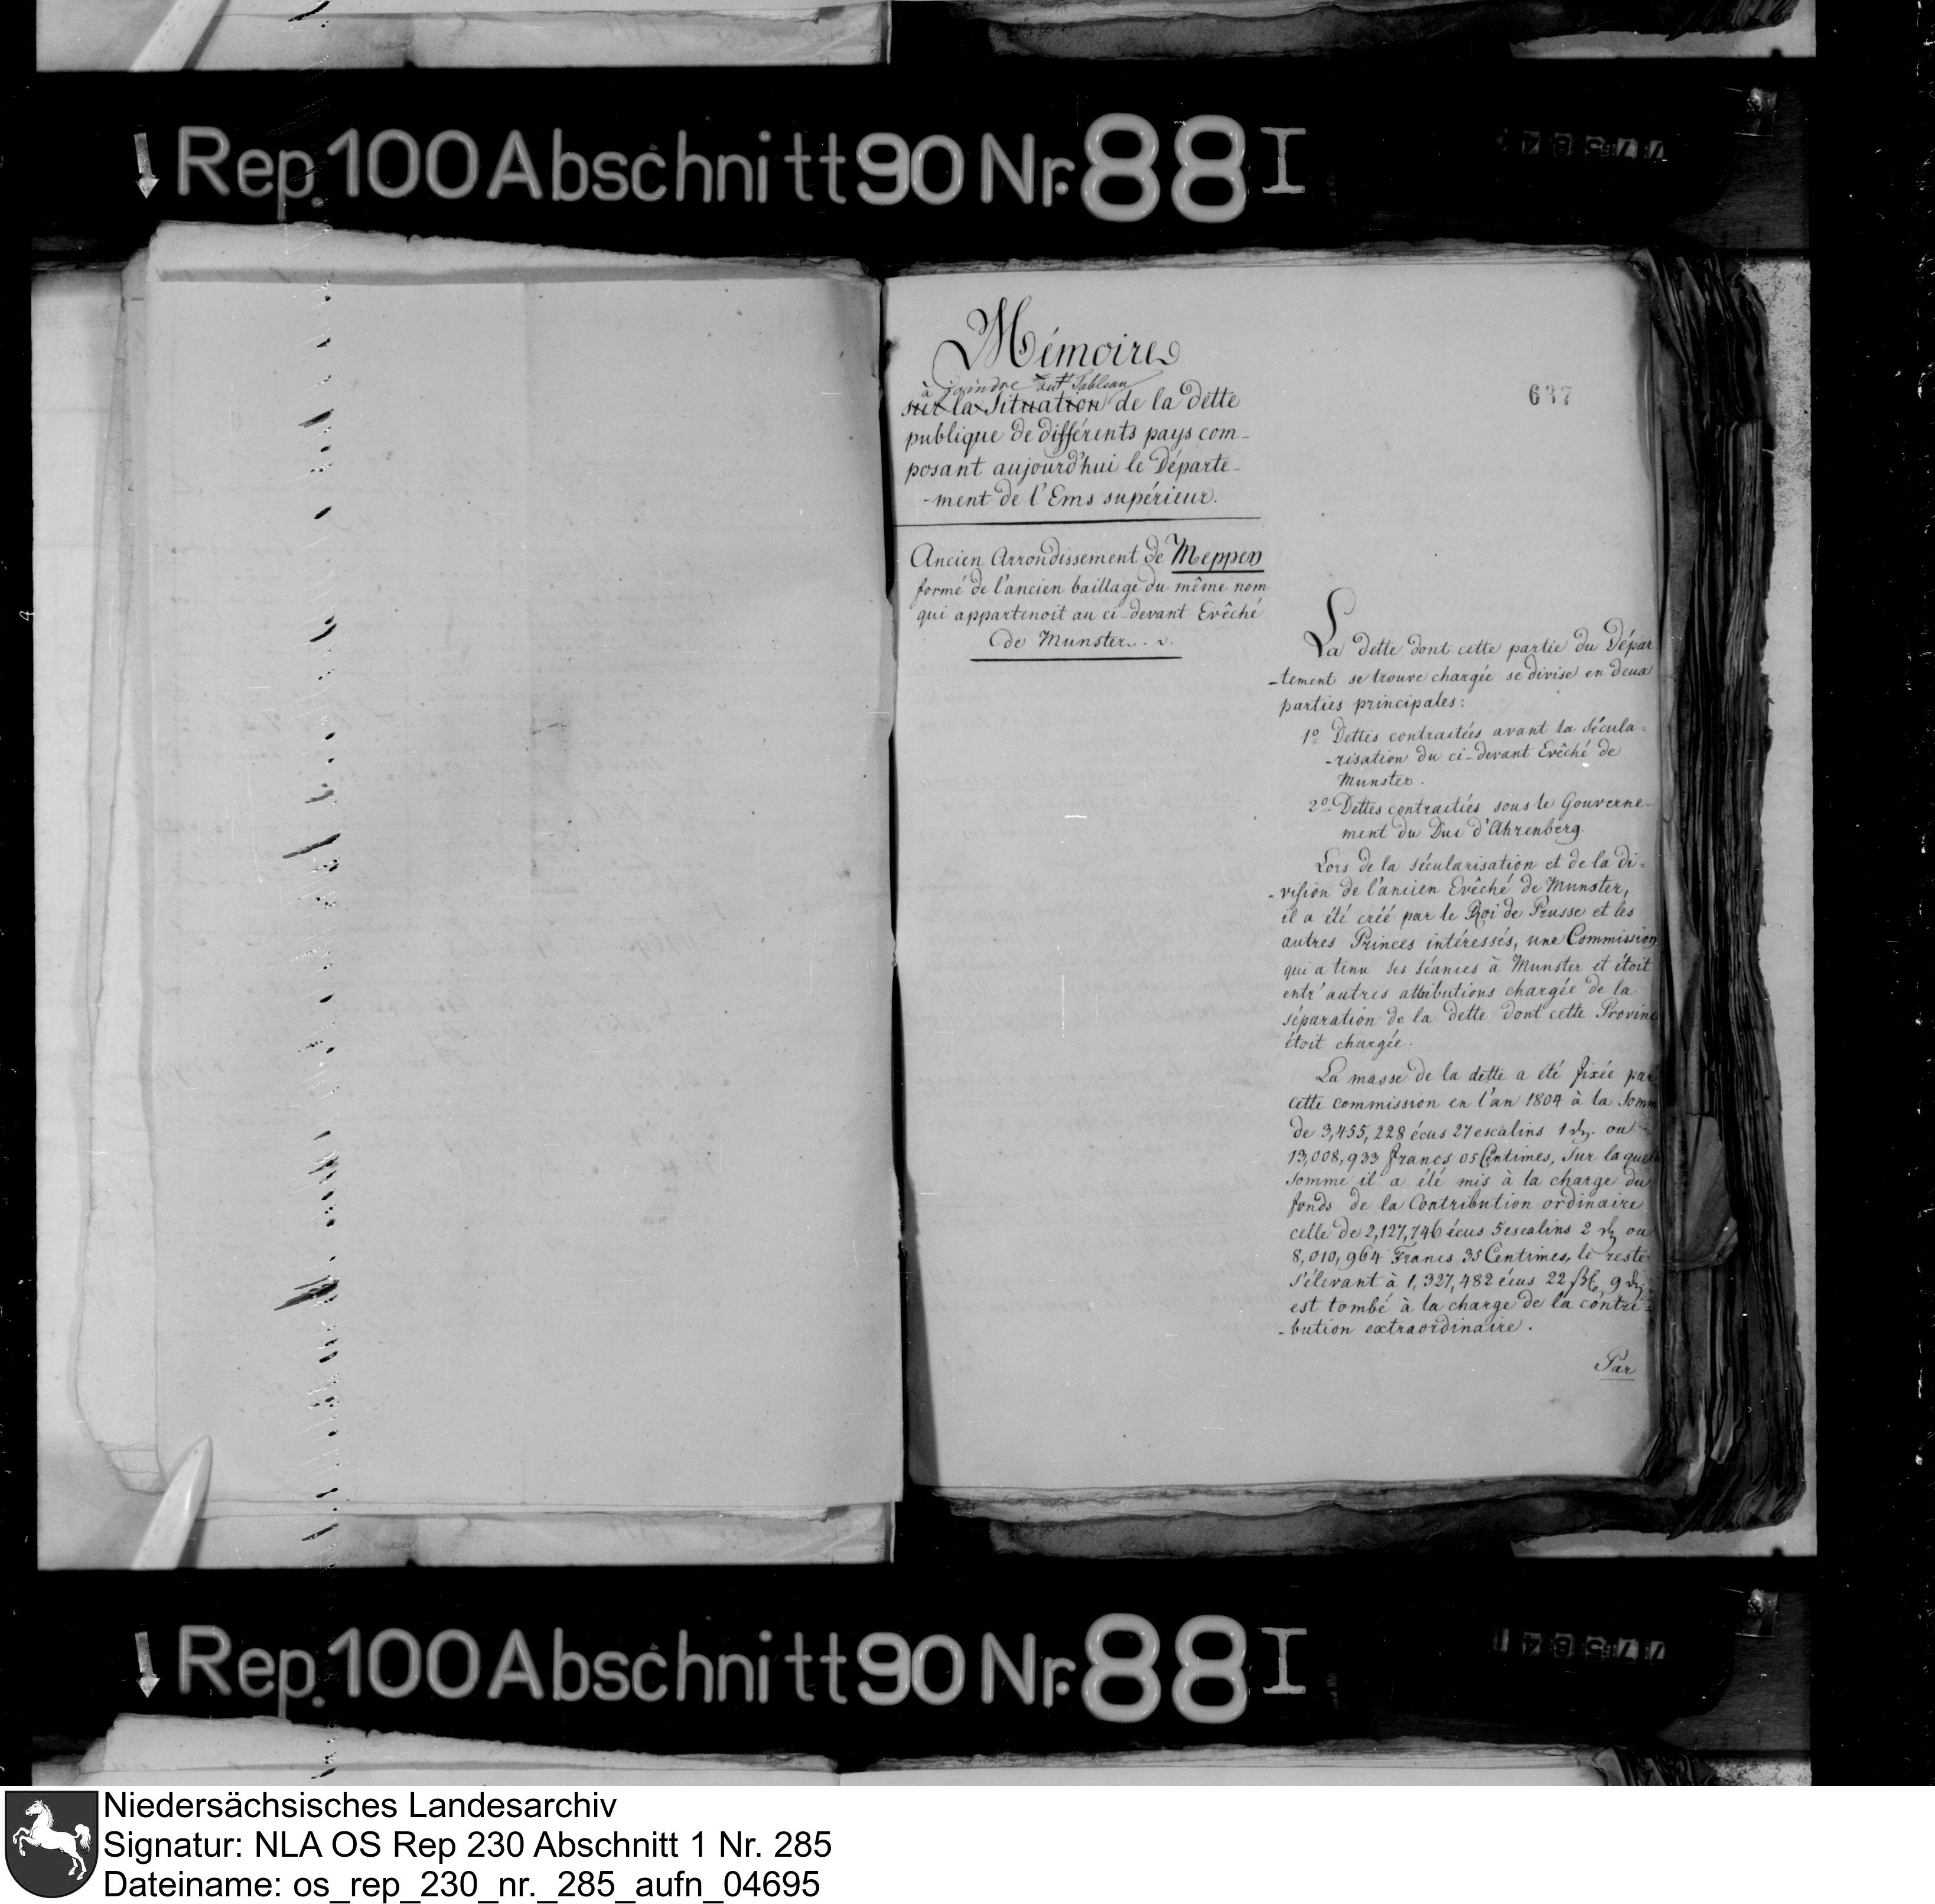 Rep. 100 Abschnitt 90 Nr. 88 I
637
Mémoire
à joindre au Tableau
sur la Situation de la dette
publique de différents pays com-
posant aujourd'hui le Départe-
-ment de l'Ems supérieur.
Ancien Arrondissement de Meppen
formé de l'ancien baillage du même nom
qui appartenoit au ci-devant Evêché
de Munster.
La dette dont cette partie du Dépar
-tement se trouve chargée se divise en deux
parties principales:
1º Dettes contractées avant la sécula-
-risation du ci-devant Evêché de
Munster.
2º Dettes contractées sous le Gouverne-
ment du Duc d'Ahrenberg.
Lors de la sécularisation et de la di-
-vision de l'ancien Evêché de Munster,
il a été créé par le Roi de Prusse et les
autres Princes intéressés, une Commission
qui a tenu ses séances à Munster et étoit
entr'autres attributions chargée de la
séparation de la dette dont cette Provinc
étoit chargée.
La masse de la dette a été fixée par
cette commission en l'an 1804 à la Somm
de 3,455,228 écus 27 escalins 1 d. ou
13,008,933 francs 05 Centimes, sur laquel
somme il a été mis à la charge du
fonds de la Contribution ordinaire
celle de 2,127,746 écus 5 escalins 2 d. ou
8,010,964 Francs 35 Centimes, le reste
s'élevant à 1,327,482 écus 22 ßl, 9 d.
est tombé à la charge de la contri-
-bution extraordinaire.
Par
Rep. 100 Abschnitt 90 Nr. 88 I
Niedersächsisches Landesarchiv
Signatur: NLA OS Rep 230 Abschnitt 1 Nr. 285
Dateiname: os_rep_230_nr._285_aufn_04695